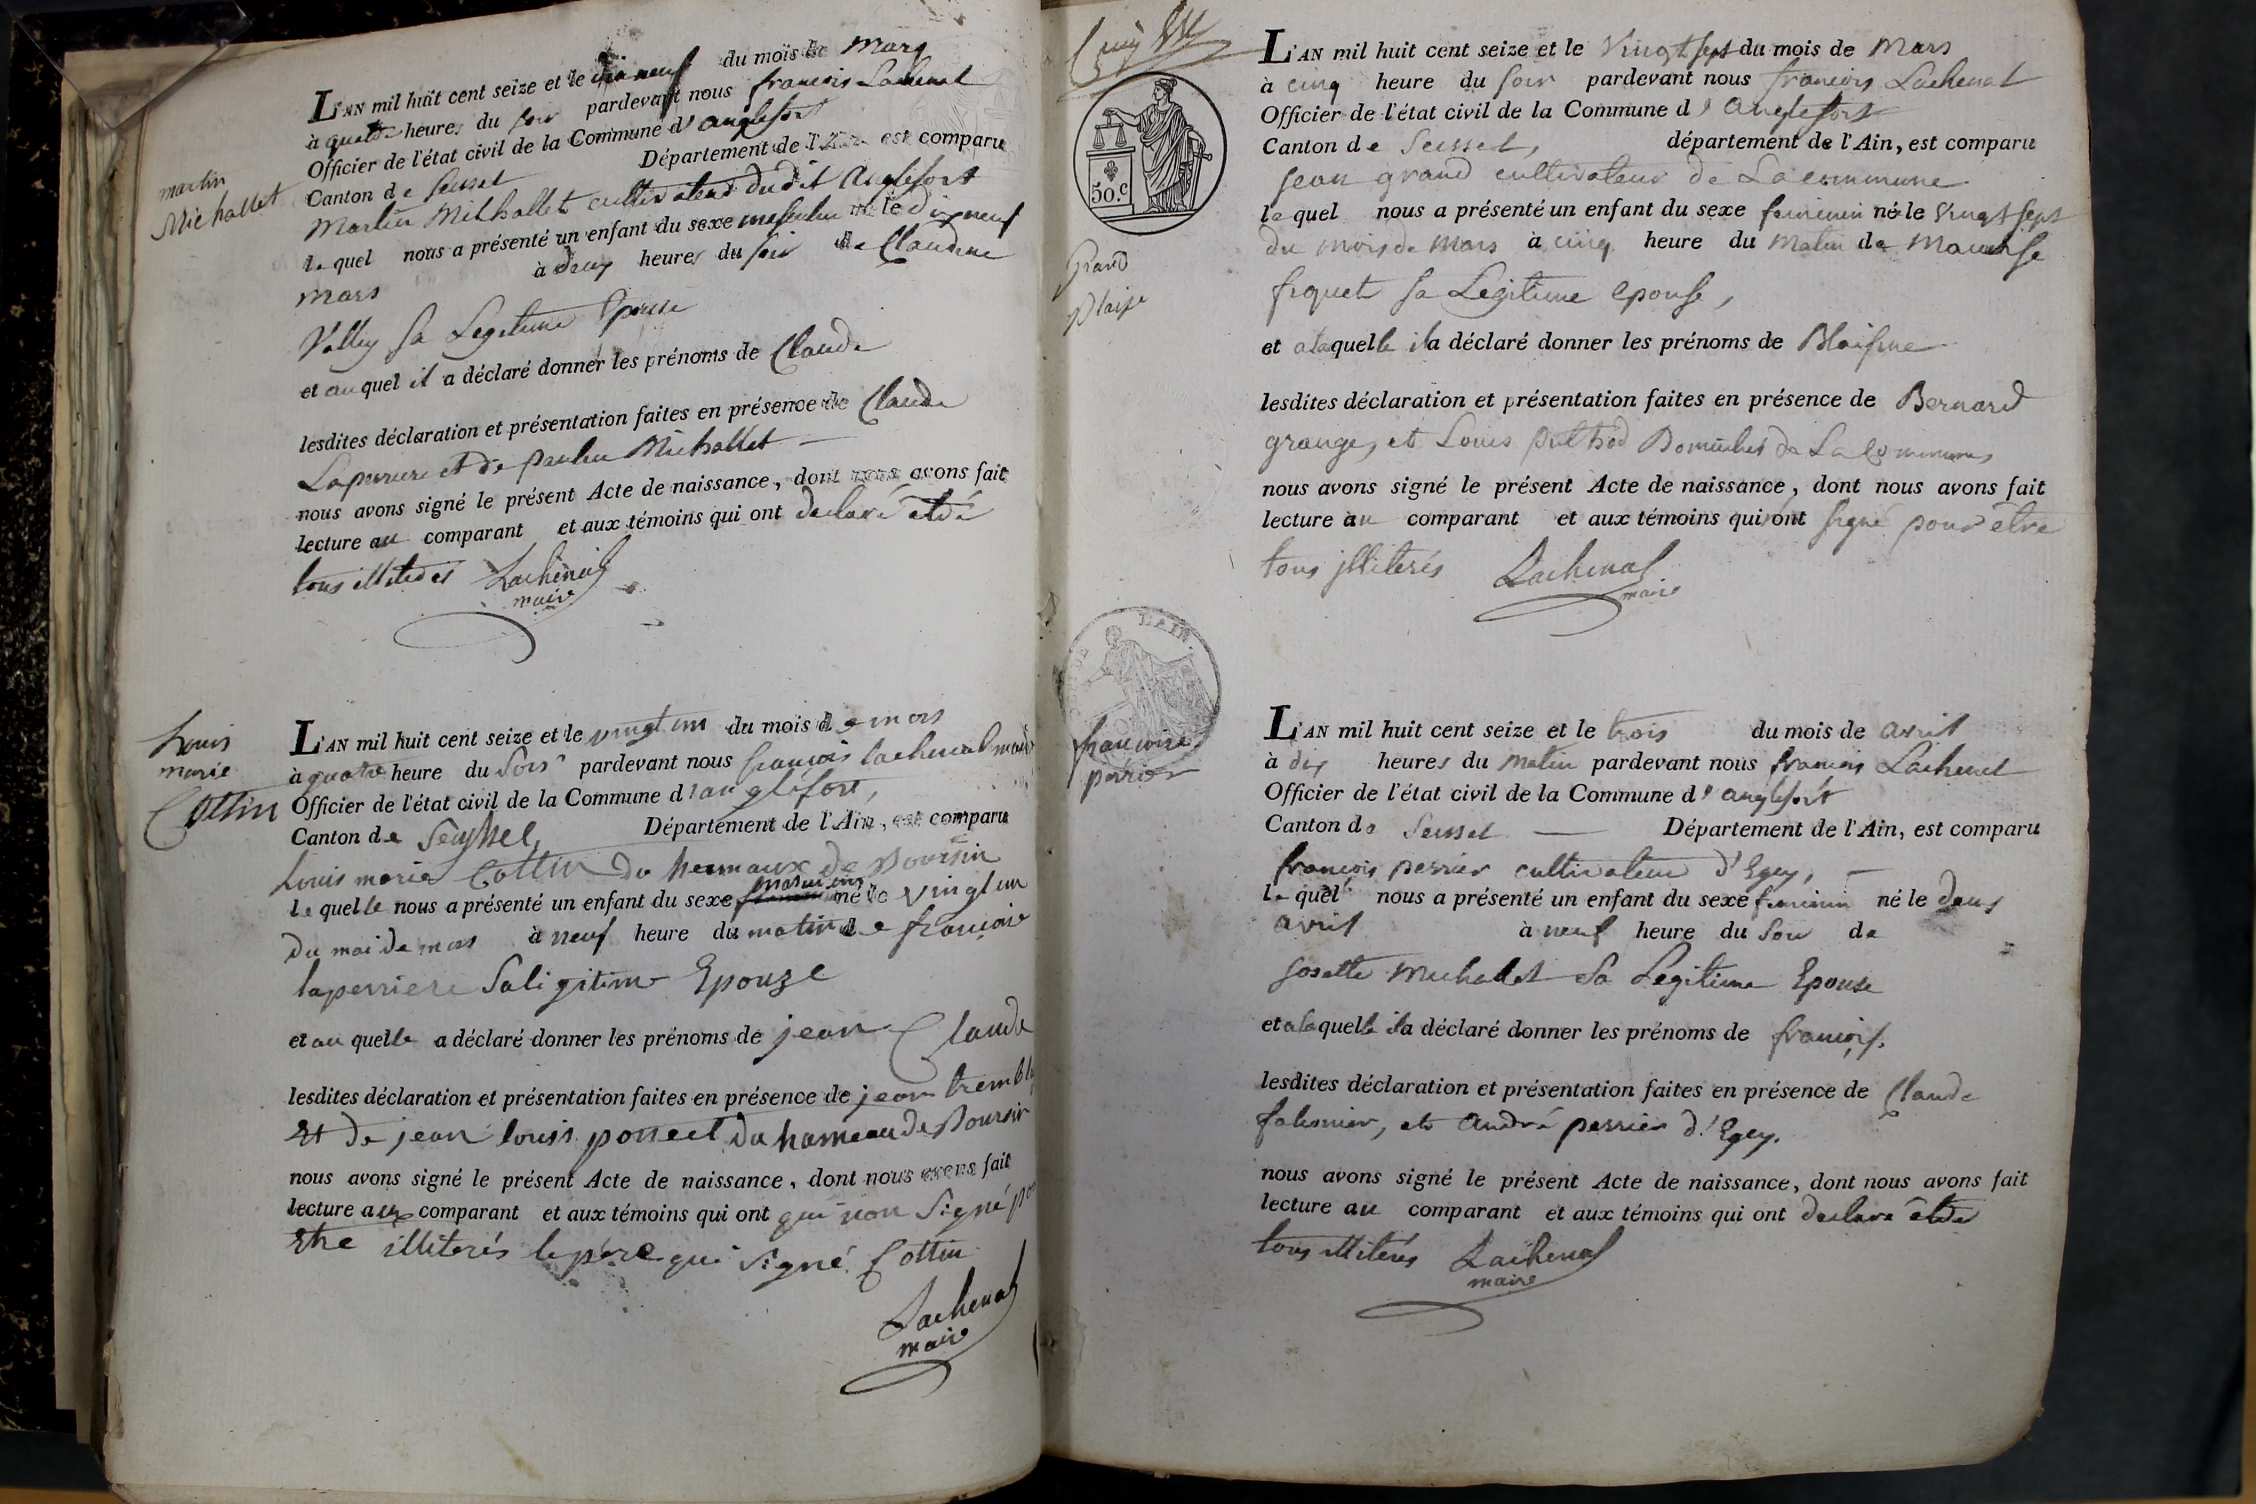 martin
Michallet
L'AN mil huit cent seize et le dix neuf du mois de mars
à quatre heures du soir pardevant nous francois Lachenal
Officier de l'état civil de la Commune d'anglefort
Canton de Seissel Département de l'Ain est comparu
Martin Michallet cultivateur dudit Anglefort
lequel nous a présenté un enfant du sexe masculin né le dixneuf
mars à deux heures du soir de Claudine
Vallin sa Legitime Epouse
et au quel il a déclaré donner les prénoms de Claude
lesdites déclaration et présentation faites en présence de Claude
Laperriere et de Michallet
nous avons signé le présent Acte de naissance, dont nous avons fait
lecture au comparant et aux témoins qui ont declaré
tous Lachenal
maire
Louis
marie
Cottin
L'AN mil huit cent seize et le vingt un du mois de mars
à quatre heure du Soir pardevant nous francois lachenal maire
Officier de l'état civil de la Commune d'anglefort,
Canton de Seyssel, Département de l'Ain, est comparu
Louis marie Cottin du hermaux de
le quelle nous a présenté un enfant du sexe masculin né le vingt un
du moi de mars à neuf heure du matin de francoise
laperriere Saligitime Epouze
et au quelle a déclaré donner les prénoms de jean Claude
lesdites déclaration et présentation faites en présence de jean
Et de jean louis du hameau de
nous avons signé le présent Acte de naissance, dont nous avons fait
lecture aux comparant et aux témoins qui ont qui non Signé
Etre illiterés le père qui Signé Cottin
Lachenal
maire
50.c
Grand
Blaise
L'AN mil huit cent seize et le Vingt sept du mois de Mars
à cinq heure du soir pardevant nous francois Lachenal
Officier de l'état civil de la Commune d'anglefort
Canton de Seissel, département de l'Ain, est comparu
jean grand cultivateur de La commune
le quel nous a présenté un enfant du sexe feminin né le Vingt sept
du mois de Mars à cinq heure du Matin de
fiquet sa Legitime epouse,
et a laquelle il a déclaré donner les prénoms de
lesdites déclaration et présentation faites en présence de Bernard
grange, et Louis de La Commune
nous avons signé le présent Acte de naissance, dont nous avons fait
lecture au comparant et aux témoins qui ont signé pour être
tous jlliterés Lachenal
maire
L'AIN
francoise
perrier
L'AN mil huit cent seize et le trois du mois de avril
à dix heures du matin pardevant nous francois Lachenal
Officier de l'état civil de la Commune d'anglefort
Canton de Seissel Département de l'Ain, est comparu
françois perrier cultivateur d'Egey,
le quel nous a présenté un enfant du sexe feminin né le deux
avril à neuf heure du Soir de
Josette Michallet Sa Legitime Epouse
et a laquelle il a déclaré donner les prénoms de
lesdites déclaration et présentation faites en présence de Claude
et andré perrier d'Egey.
nous avons signé le présent Acte de naissance, dont nous avons fait
lecture au comparant et aux témoins qui ont declaré
tous illiterés Lachenal
maire